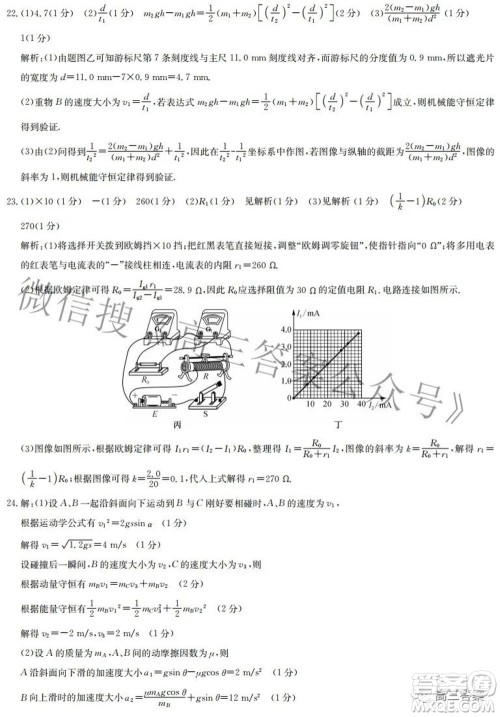 22.(1)4.7(1分) (2)d/t₁(1分) m₂gh−m₁gh=1/2(m₁+m₂)[(d/t₂)²−(d/t₁)²](2分) (3)2(m₂−m₁)gh/(m₁+m₂)d²(1分)
1(1分)
解析:(1)由题图乙可知游标尺第7条刻度线与主尺11.0 mm刻度线对齐,而游标尺的分度值为0.9 mm,所以遮光片
的宽度为d=11.0 mm−7×0.9 mm=4.7 mm.
(2)重物B的速度大小为v₁=d/t₁,若表达式m₂gh−m₁gh=1/2(m₁+m₂)[(d/t₂)²−(d/t₁)²]成立,则机械能守恒定律
得到验证.
(3)由(2)问得到1/t₂²=2(m₂−m₁)gh/(m₁+m₂)d²+1/t₁²,因此在1/t₂²-1/t₁²坐标系中作图,若图像与纵轴的截距为2(m₂−m₁)gh/(m₁+m₂)d²,图像的
斜率为1,则机械能守恒定律得到验证.
23.(1)×10(1分) −(1分) 260(1分) (2)R₁(1分) 见解析(1分) (3)见解析(1分) (1/k−1)R₀(2分)
270(1分)
解析:(1)将选择开关拨到欧姆挡×10挡;把红黑表笔直接短接,调整“欧姆调零旋钮”,使指针指向“0 Ω”;将多用电表
的红表笔与电流表的“−”接线柱相连,电流表的内阻r₁=260 Ω.
(2)根据欧姆定律可得R₀=I_g1r₁/(I_g2−I_g1)=28.9 Ω,因此R₀应选择阻值为30 Ω的定值电阻R₁.电路连接如图所示.
G₁
G₂
R₀
R
E
S
丙
I₁/mA
4.0
3.0
2.0
1.0
0
10 20 30 40
I₂/mA
丁
(3)图像如图所示,根据欧姆定律可得I₁r₁=(I₂−I₁)R₀,整理得I₁=R₀/(R₀+r₁)I₂,图像的斜率k=R₀/(R₀+r₁),解得r₁=
(1/k−1)R₀;根据图像可得k=2.0/20=0.1,代入上式可得r₁=270 Ω.
24.解:(1)设A、B一起沿斜面向下运动到B与C刚好要相碰时,A、B的速度为v₁,
根据运动学公式有v₁²=2gssin α (1分)
解得v₁=√1.2gs=4 m/s (1分)
设碰撞后一瞬间,B的速度大小为v₂,C的速度大小为v₃,则
根据动量守恒有m_Bv₁=m_Bv₂+m_Cv₃ (2分)
根据能量守恒有1/2m_Bv₁²=1/2m_Cv₃²+1/2m_Bv₂² (2分)
解得v₂=−2 m/s,v₃=2 m/s (2分)
(2)设A的质量为m_A,A、B间的动摩擦因数为μ,则
A沿斜面向下滑的加速度大小a₁=gsin θ−μgcos θ=2 m/s² (1分)
B向上滑时的加速度大小a₂=μm_Agcos θ/m_B+gsin θ=12 m/s² (1分)
微信搜《高三答案公众号》
高三答案